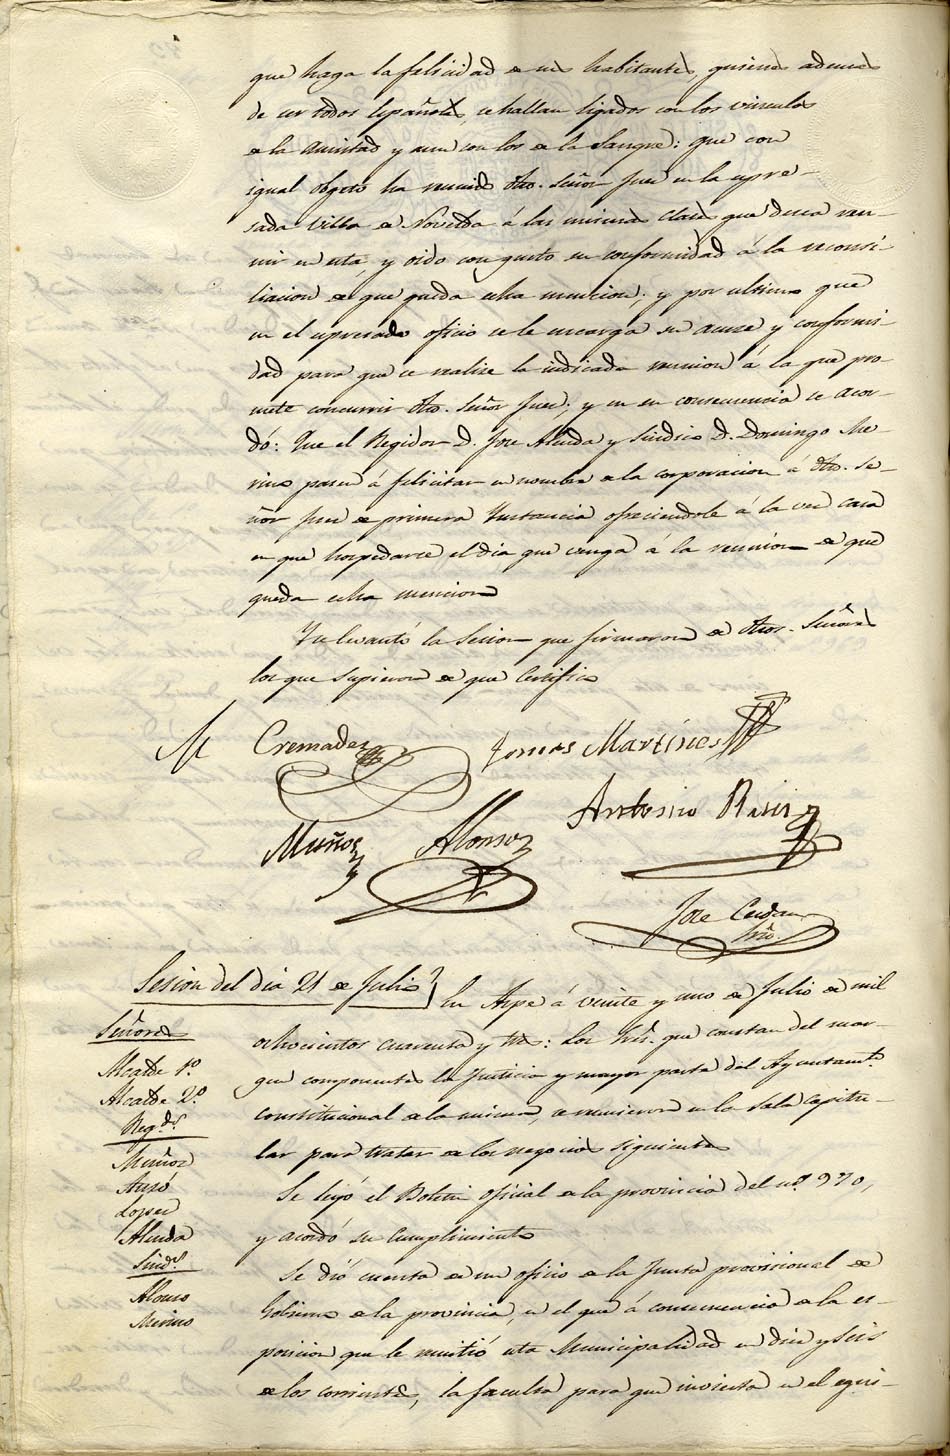 que haga la felicidad de sus habitantes, quienes ademas
de ser todos Españoles, se hallan ligados con los vinculos
de la Amistad y aun con los de la Sangre: que con
igual objeto ha reunido dho. Señor Juez en la espre-
sada Villa de Novelda á las mismas clases que desea reu-
nir en esta, y oido con gusto su conformidad á la reconsi-
liacion de que queda echa mencion; y por ultimo que
en el espresado oficio se le encarga su aviso y conformi-
dad para que se realize la indicada reunion á la que pro-
mete concurrir dho. Señor Juez; y en su consecuencia se acor-
dó: Que el Regidor D. José Almida y Sindico D. Domingo Me-
rino pasen á felicitar en nombre de la corporacion á dho. Se-
ñor Juez de primera Ynstancia ofreciendole á la vez casa
en que hospedarse el dia que venga á la reunion de que
queda echa mencion
Y se levantó la Sesion que firmaron de dhos. Señores
los que supieron de que Certifico
Cremades Tomas Martines
Antonio Ruiz
Muñoz Alonso
Jose Cerdan
Srio.
Sesion del dia 21 de Julio
En Aspe á veinte y uno de Julio de mil
ochocientos cuarenta y tres: Los Sres. que constan del mar-
gen componentes la Justicia y mayor parte del Ayuntamto.
constitucional de la misma, se reunieron en la Sala Capitu-
lar para tratar de los negocios siguientes
Se leyó el Boletin oficial de la provincia del no. 970,
y acordó su Cumplimiento
Se dió cuenta de un oficio de la Junta provisional de
Gobierno de la provincia, en el que á consecuencia de la es-
posicion que le remitió esta Municipalidad en diez y seis
de los corrientes, la faculta para que invierta en el equi-
Señores
Alcalde 1.º
Alcalde 2.º
Regds.
Muñoz
Aznó
Lopez
Almida
Sinds.
Alonso
Merino